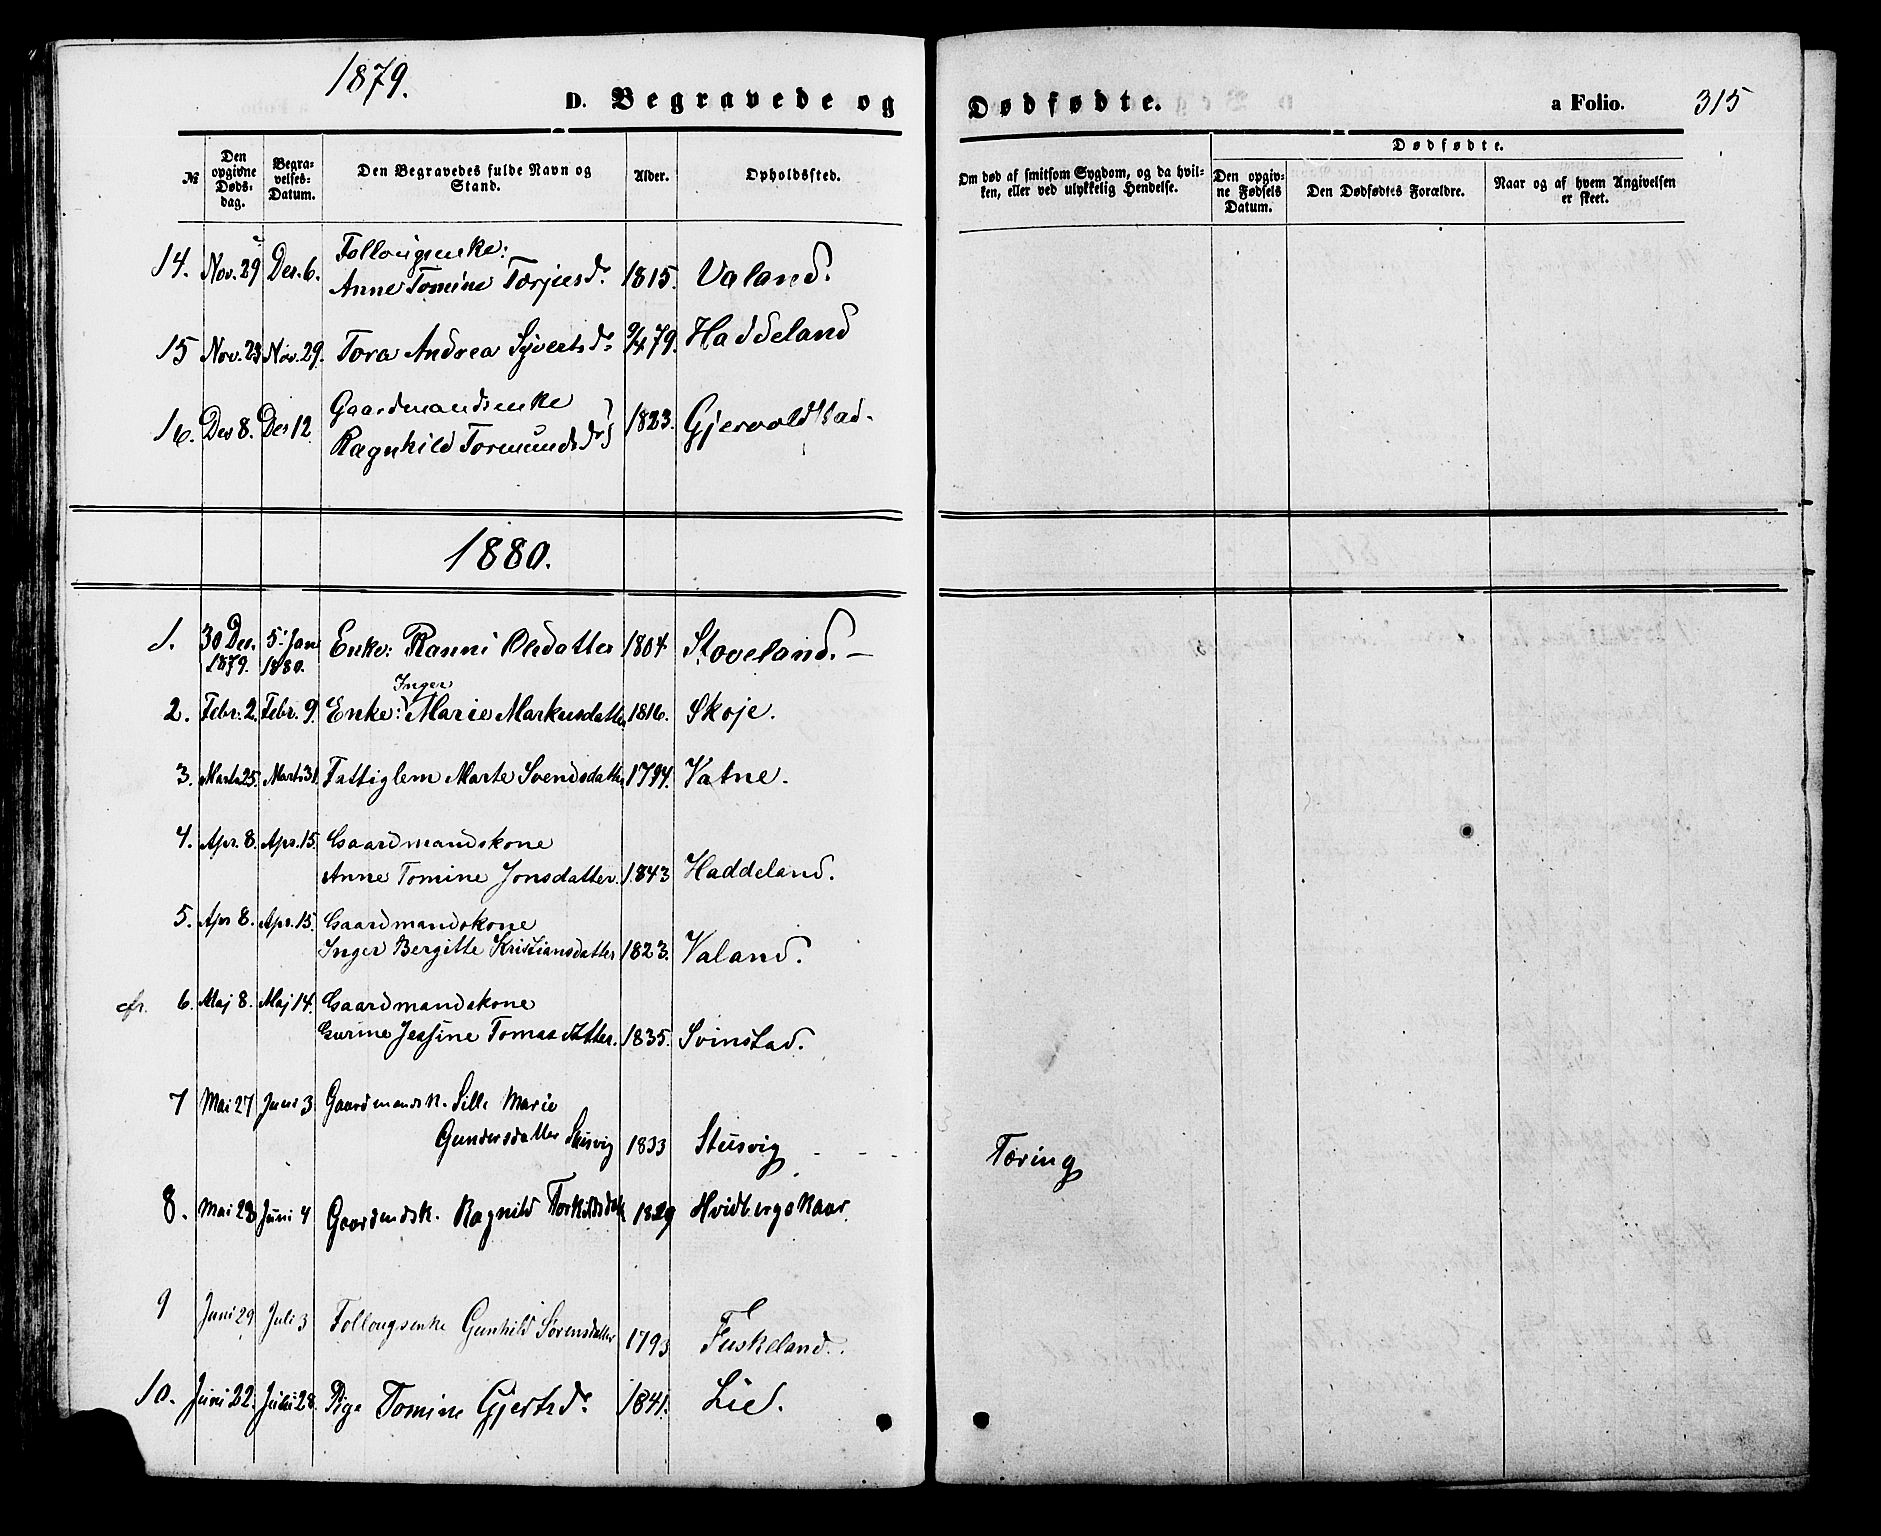 1879.
D. Begravede og Dødfødte. a Folio. 315
№ Den opgivne Døds-dag. Begra-velses-Datum. Den Begravedes fulde Navn og Stand. Alder. Opholdssted. Om død af smitsom Sygdom, og da hvil-ken, eller ved ulykkelig Hendelse. Dødfødte. Den opgiv-ne Fødsels Datum. Den Dødfødtes Forældre. Naar og af hvem Angivelsen er skeet.
Follougsenke:
14. Nov. 29 Des. 6. Anne Tomine Tærjesdr. 1815. Valand.
15 Nov. 23 Nov. 29. Tora Andrea Syvertsdr. 9/4 79. Haddeland
Gaardmandsenke
16. Des 8. Des 12. Ragnhild Tormundsdr. 1823. Gjervoldstad.
1880.
1. 30 Des. 1879. 5. Jan 1880. Enke: Ranni Olsdatter 1804. Stoveland. –
Inger
2. Febr. 2. Febr. 9. Enke: Marie Markusdatter 1816. Skoje.
3. Marts 25. Marts 31. Fattiglem Marte Svendsdatter 1794. Vatne.
4. Apr. 8. Apr. 15. Gaardmandskone
Anne Tomine Jonsdatter. 1843 Haddeland.
5. Apr 8. Apr. 15. Gaardmandskone
Inger Bergitte Kristiansdatter 1823. Valand.
cfr. 6. Maj 8. Maj 14. Gaardmandskone
Gurine Jessine Tomasdatter. 1835. Svinstad.
7 Mai 27 Juni 3 Gaardmandsk. Sille Marie
Gundersdatter Stusvig 1833 Stusvig Tæring
8. Mai 28 Juni 4 Gaardmdsk. Ragnild Torkildsdatt 1829 Hvidbergskaar.
9 Juni 29 Juli 3 Follougsenke Gunhild Sørensdatter 1793 Fuskeland.
10. Juni 22. Juni 28. Pige Tomine Gjertsdr. 1841. Lie.